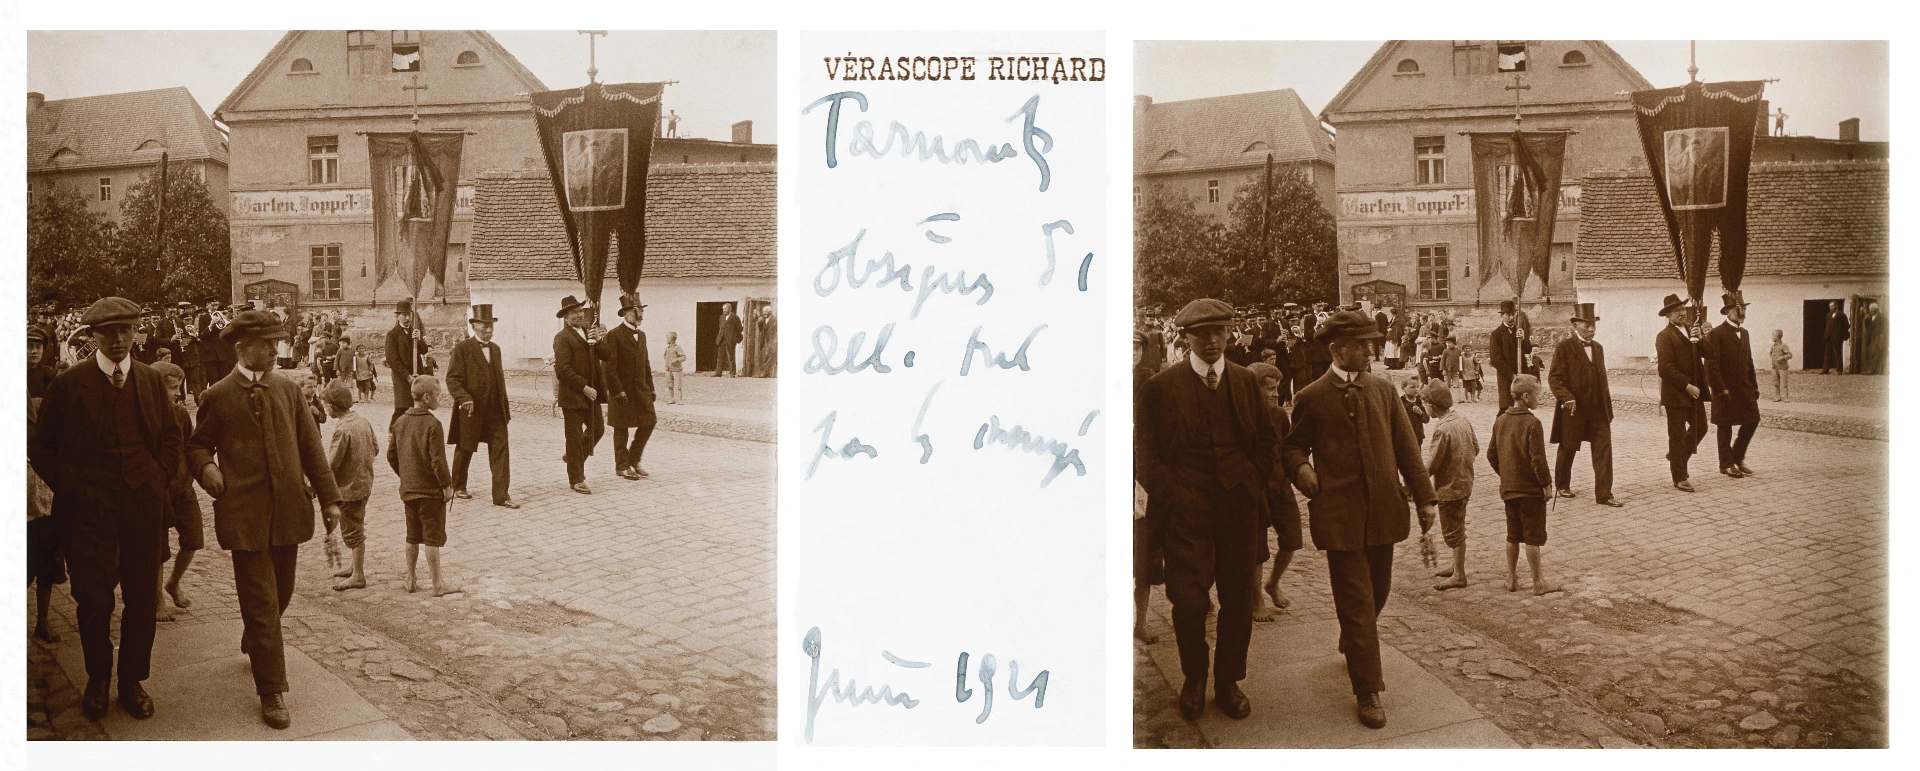 Garten, Doppel-
VÉRASCOPE RICHARD
Tarnowitz
obsèques d'1
All. tué
par les
Juin 1921
Garten, Doppel-